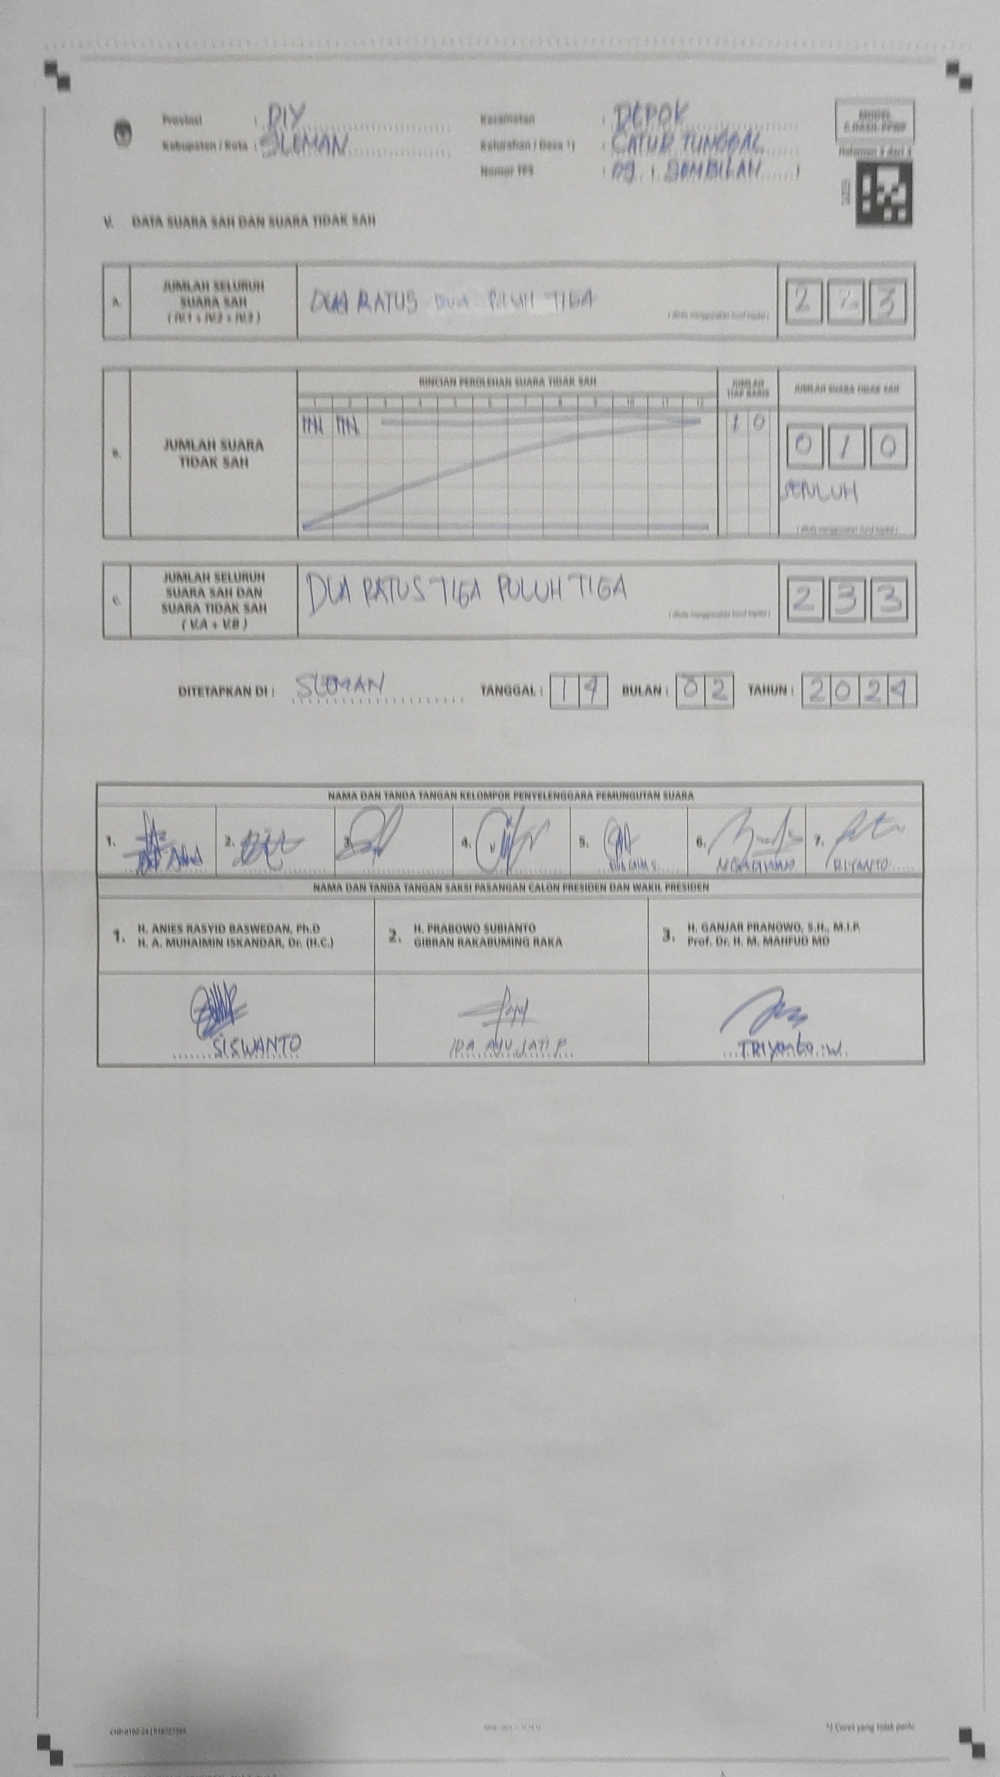 Provinsi : DIY
Kabupaten / Kota : SLEMAN
Kecamatan : DEPOK
Kelurahan / Desa *) : CATUR TUNGGAL
Nomor TPS : 09 ( SEMBILAN )
MODEL
C.HASIL-PPWP
Halaman 3 dari 3
V. DATA SUARA SAH DAN SUARA TIDAK SAH
A. JUMLAH SELURUH
SUARA SAH
( IV.1 + IV.2 + IV.3 )
DUA RATUS DUA PULUH TIGA
( ditulis menggunakan huruf kapital )
2 2 3
B. JUMLAH SUARA
TIDAK SAH
RINCIAN PEROLEHAN SUARA TIDAK SAH
1 2 3 4 5 6 7 8 9 10 11 12
JUMLAH
TIAP BARIS
1 0
JUMLAH SUARA TIDAK SAH
0 1 0
SEPULUH
( ditulis menggunakan huruf kapital )
C. JUMLAH SELURUH
SUARA SAH DAN
SUARA TIDAK SAH
( V.A + V.B )
DUA RATUS TIGA PULUH TIGA
( ditulis menggunakan huruf kapital )
2 3 3
DITETAPKAN DI : SLEMAN TANGGAL : 14 BULAN : 02 TAHUN : 2024
NAMA DAN TANDA TANGAN KELOMPOK PENYELENGGARA PEMUNGUTAN SUARA
1. 2. 3. 4. 5. 6. 7.
RIYANTO
NAMA DAN TANDA TANGAN SAKSI PASANGAN CALON PRESIDEN DAN WAKIL PRESIDEN
1. H. ANIES RASYID BASWEDAN, Ph.D
H. A. MUHAIMIN ISKANDAR, Dr. (H.C.)
2. H. PRABOWO SUBIANTO
GIBRAN RAKABUMING RAKA
3. H. GANJAR PRANOWO, S.H., M.I.P.
Prof. Dr. H. M. MAHFUD MD
SISWANTO
IDA AYU JATI P.
TRIYanto .W.
*) Coret yang tidak perlu